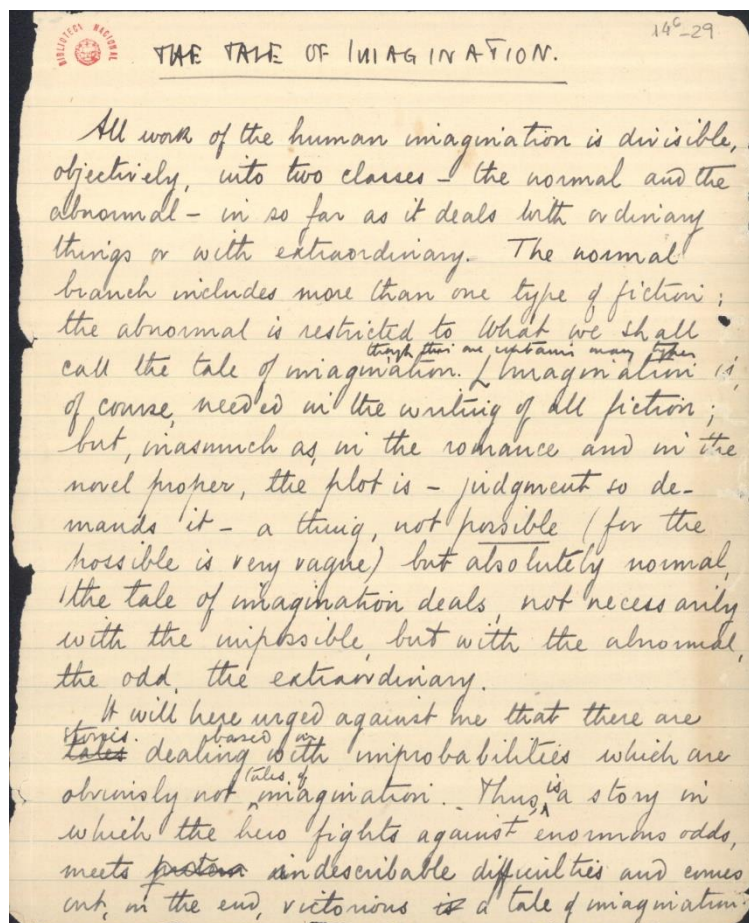 BIBLIOTECA NACIONAL
14⁶-29
THE TALE OF IMAGINATION.
All work of the human imagination is divisible,
objectively, into two classes – the normal and the
abnormal – in so far as it deals with ordinary
things or with extraordinary. The normal
branch includes more than one type of fiction;
the abnormal is restricted to what we shall
though this one contains many types
call the tale of imagination. [Imagination is,
of course, needed in the writing of all fiction;
but, inasmuch as, in the romance and in the
novel proper, the plot is – judgment so de-
mands it – a thing, not possible (for the
possible is very vague) but absolutely normal,
the tale of imagination deals, not necessarily
with the impossible, but with the abnormal,
the odd, the extraordinary.
It will here urged against me that there are
stories. based on
tales dealing with improbabilities which are
tales of
obviously not imagination. Thus, is a story in
which the hero fights against enormous odds,
meets indescribable difficulties and comes
out, in the end, victorious is a tale of imagination.